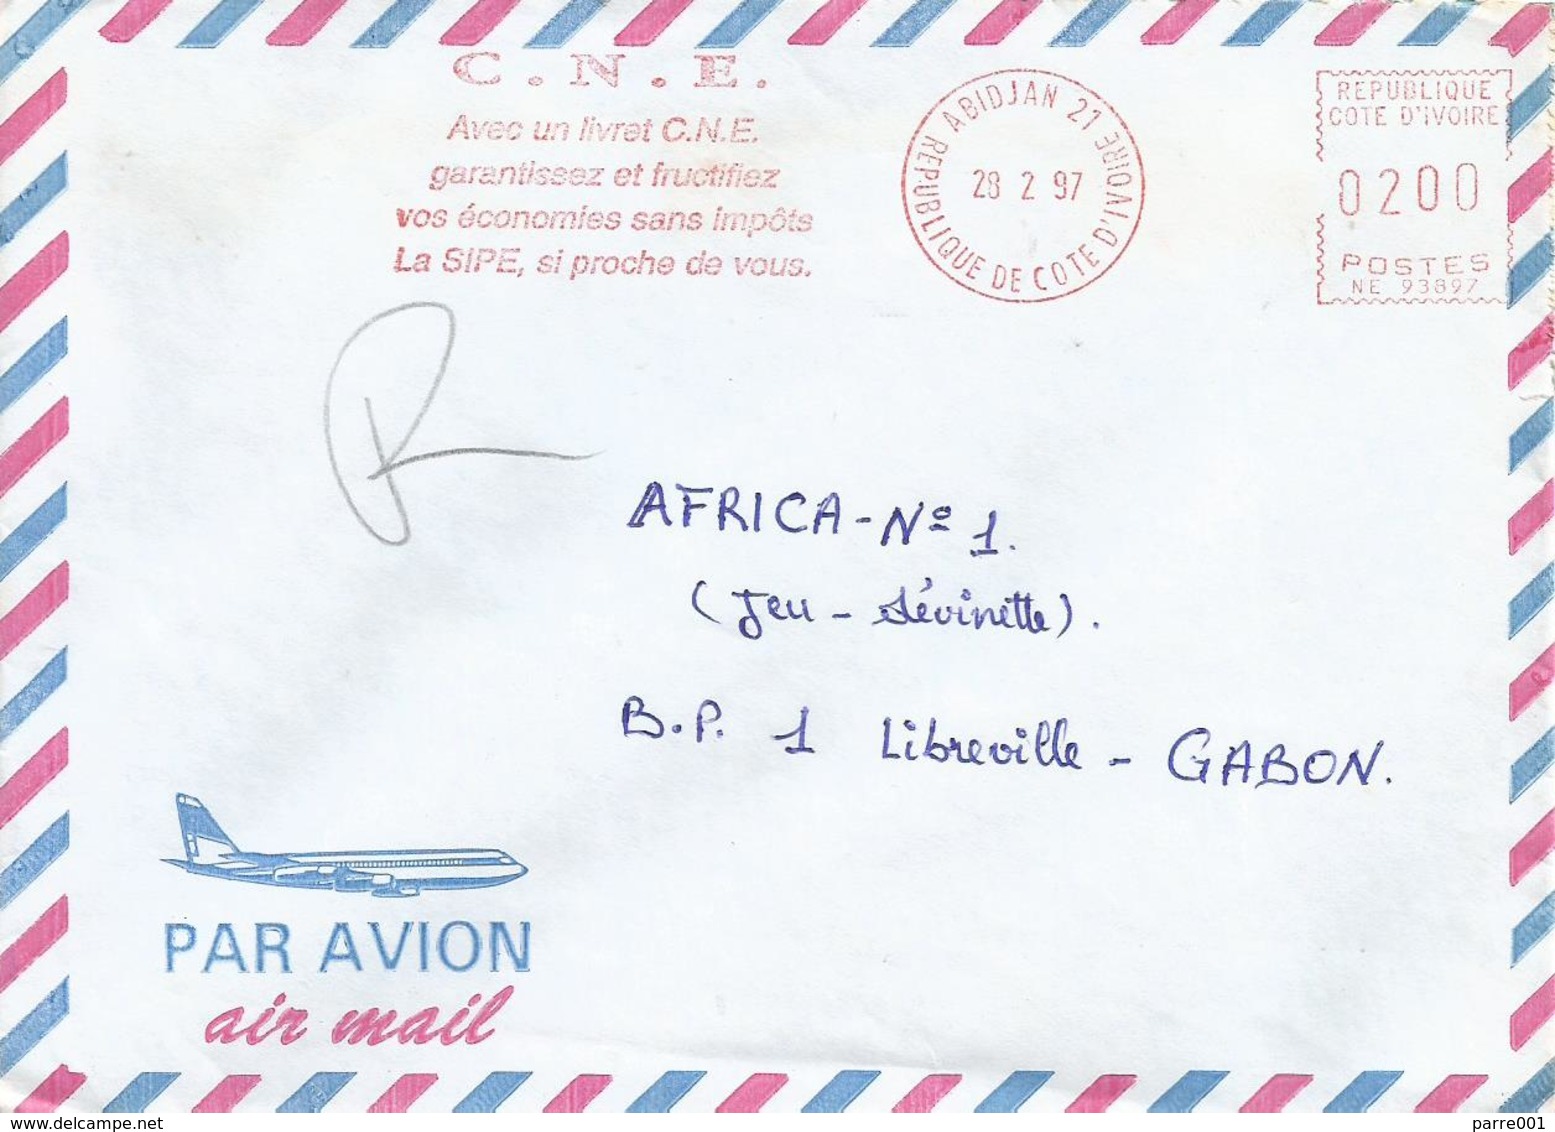 C.N.E.
Avec un livret C.N.E.
garantissez et fructifiez
vos économies sans impôts
La SIPE, si proche de vous.
ABIDJAN 21
REPUBLIQUE DE COTE D'IVOIRE
28 2 97
REPUBLIQUE
COTE D'IVOIRE
0200
POSTES
NE 93897
R
AFRICA-Nº 1.
(Jeu - dévinette).
B.P. 1 Libreville - GABON.
PAR AVION
air mail
delcampe.net
parre001